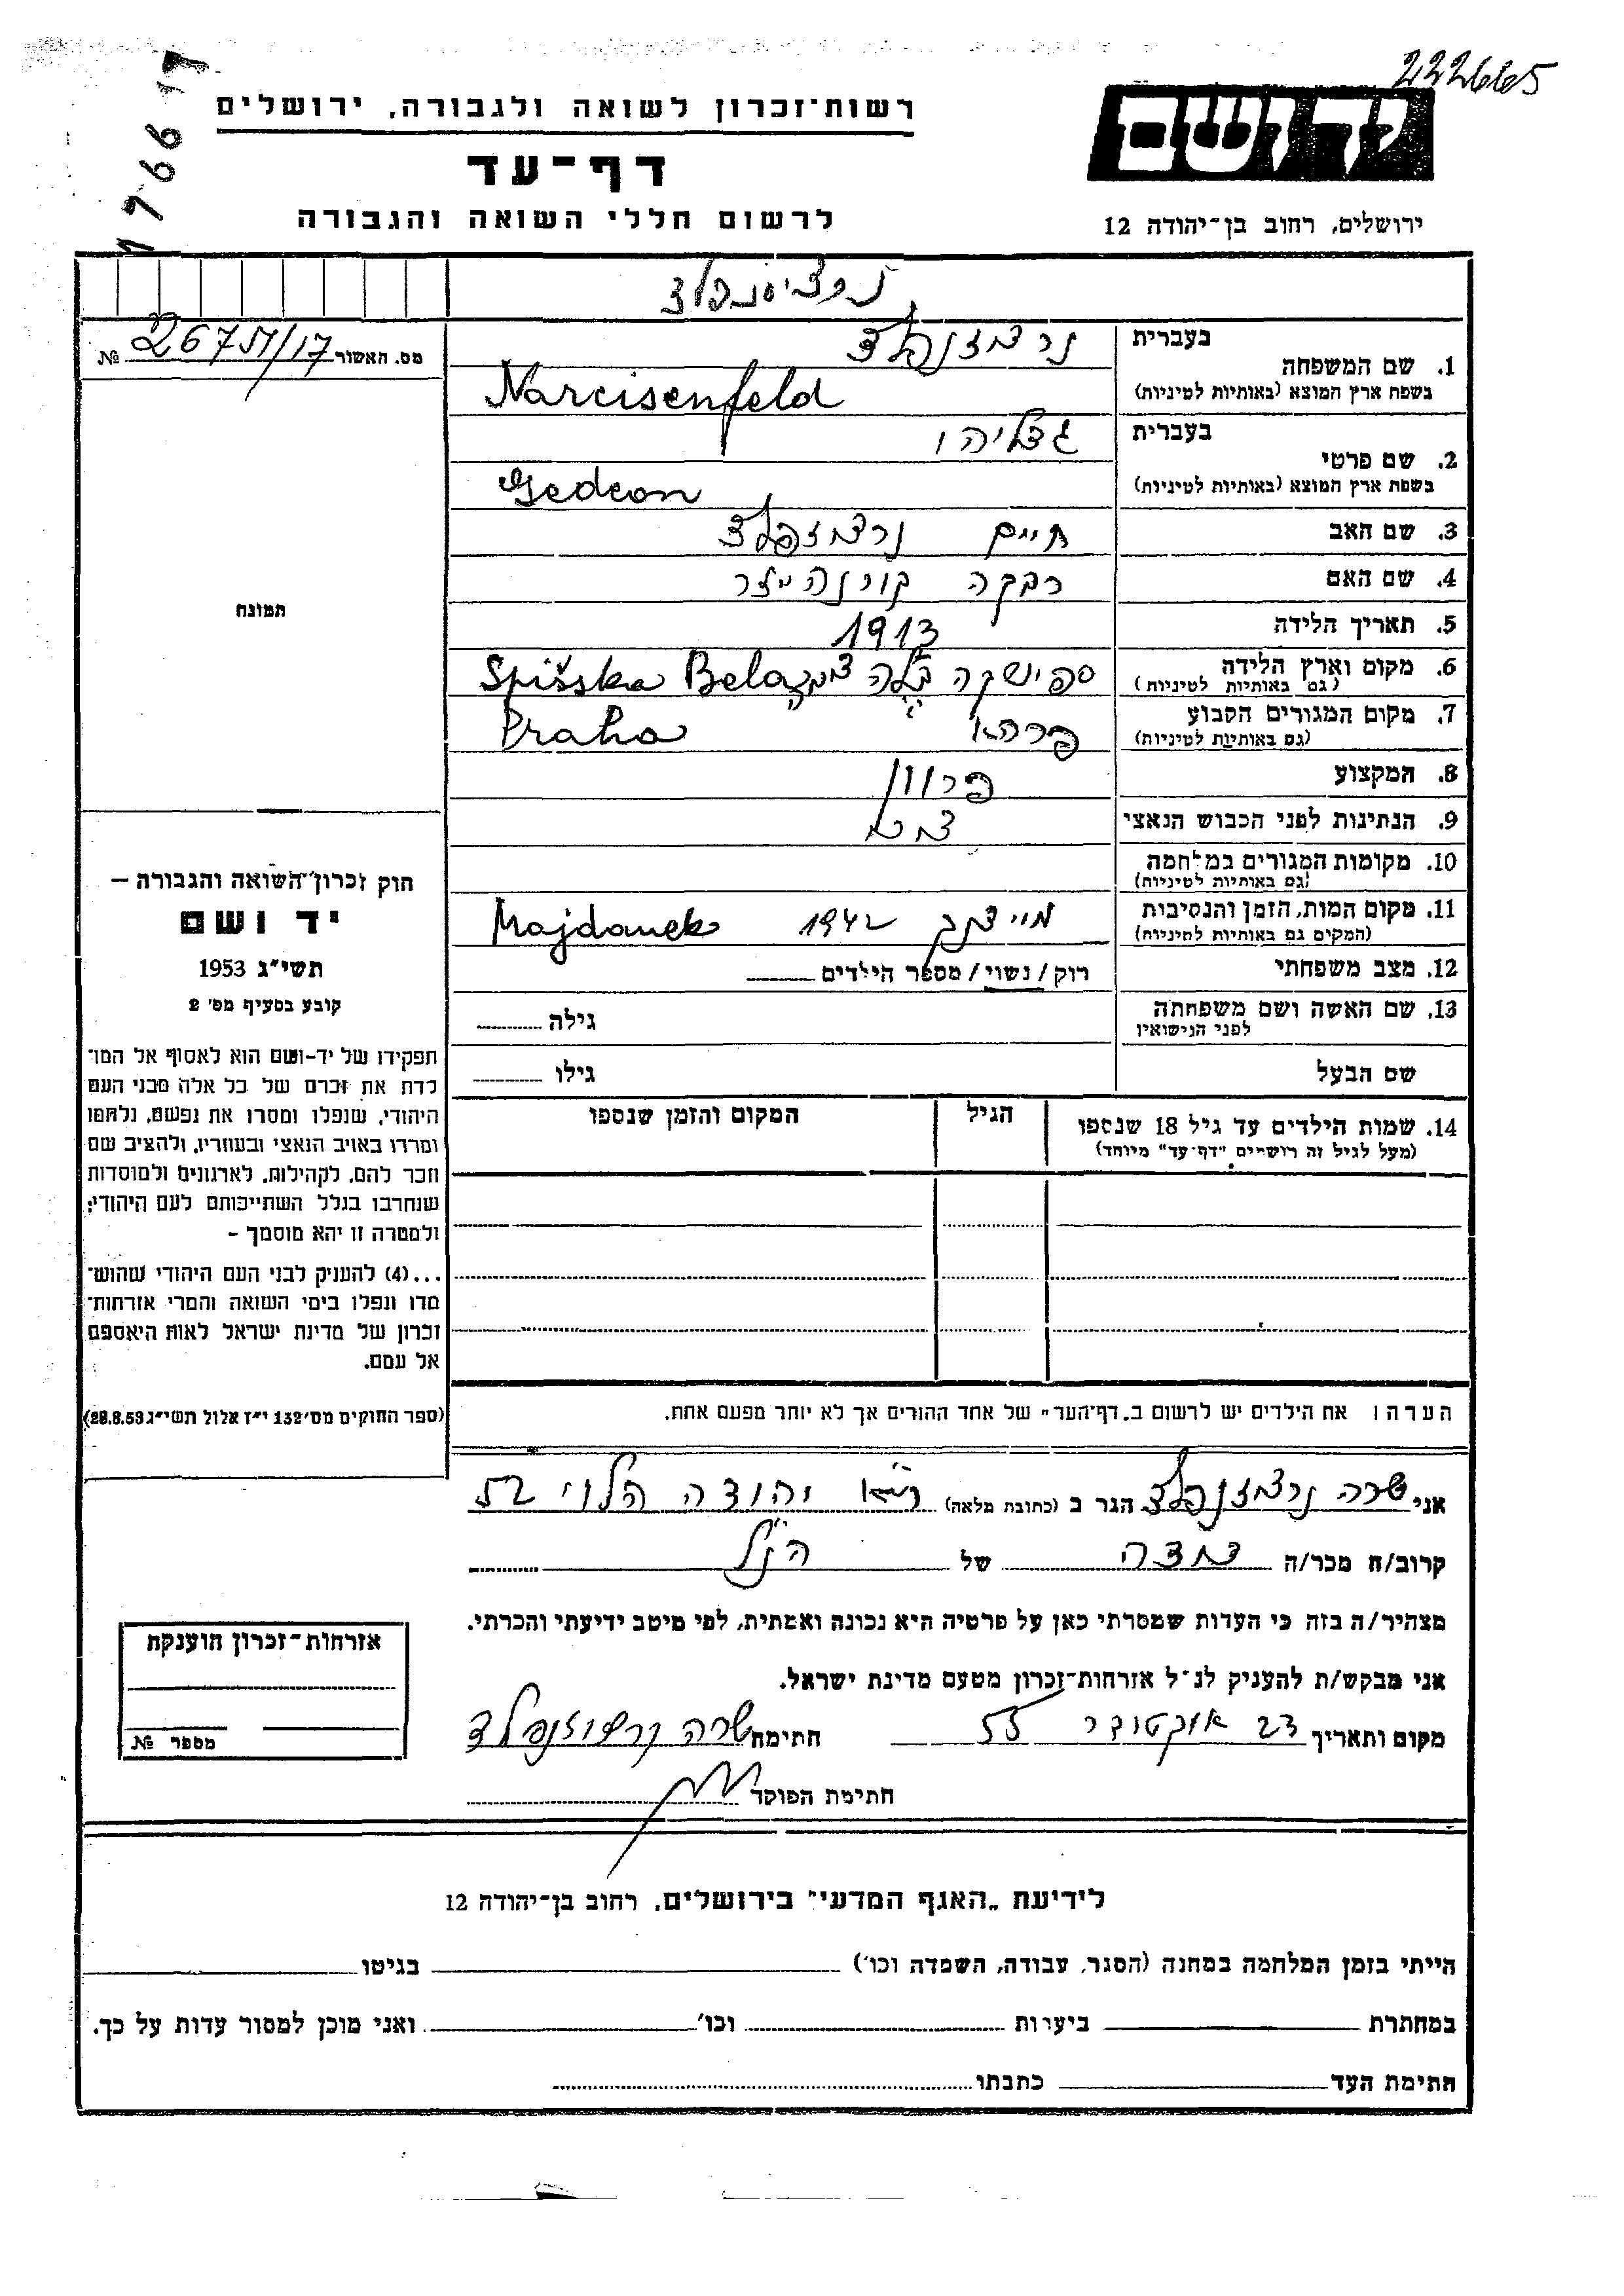 222665
17667
יד ושם
רשות־זכרון לשואה ולגבורה, ירושלים
דף־עד
לרשום חללי השואה והגבורה
ירושלים, רחוב בן־יהודה 12
נרציסנפלד
מס. האשור 267א/17 №
1. שם המשפחה
בעברית
נרצזנפלד
בשפת ארץ המוצא (באותיות לטיניות)
Narcisenfeld
2. שם פרטי
בעברית
גדליהו
בשפת ארץ המוצא (באותיות לטיניות)
Gedeon
3. שם האב
חיים
4. שם האם
רבקה
5. תאריך הלידה
1913
6. מקום וארץ הלידה
(גם באותיות לטיניות)
ספישקה בלה Spišska Bela
7. מקום המגורים הקבוע
(גם באותיות לטיניות)
פרהא Praha
8. המקצוע
9. הנתינות לפני הכבוש הנאצי
10. מקומות המגורים במלחמה
(גם באותיות לטיניות)
11. מקום המות, הזמן והנסיבות
(המקום גם באותיות לטיניות)
מיידנק 1942 Majdanek
12. מצב משפחתי
רוק / נשוי / מספר הילדים
13. שם האשה ושם משפחתה
לפני הנישואין
גילה
שם הבעל
גילו
14. שמות הילדים עד גיל 18 שנספו
(מעל לגיל זה רושמים "דף־עד" מיוחד)
הגיל
המקום והזמן שנספו
תמונה
חוק זכרון השואה והגבורה —
יד ושם
תשי"ג 1953
קובע בסעיף מס' 2
תפקידו של יד־ושם הוא לאסוף אל המו־
לדת את זכרם של כל אלה מבני העם
היהודי, שנפלו ומסרו את נפשם, נלחמו
ומרדו באויב הנאצי ובעוזריו, ולהציב שם
וזכר להם, לקהילות, לארגונים ולמוסדות
שנחרבו בגלל השתייכותם לעם היהודי;
ולמטרה זו יהא מוסמך —
...(4) להעניק לבני העם היהודי שהוש־
מדו ונפלו בימי השואה והמרי אזרחות־
זכרון של מדינת ישראל לאות היאספם
אל עמם.
(ספר החוקים מס' 132 י"ז אלול תשי"ג 28.8.53)
הערה: את הילדים יש לרשום ב„דף־העד" של אחד ההורים אך לא יותר מפעם אחת.
אני שרה נרצזנפלד הגר ב (כתובת מלאה) ת״א יהודה הלוי 52
קרוב/ה מכר/ה של הנ״ל
מצהיר/ה בזה כי העדות שמסרתי כאן על פרטיה היא נכונה ואמתית, לפי מיטב ידיעתי והכרתי.
אני מבקש/ת להעניק לנ"ל אזרחות־זכרון מטעם מדינת ישראל.
מקום ותאריך 23 אוקטובר 55 חתימה שרה נרציזנפלד
חתימת הפוקד
אזרחות־זכרון הוענקה
מספר №
לידיעת „האגף המדעי" בירושלים, רחוב בן־יהודה 12
הייתי בזמן המלחמה במחנה (הסגר, עבודה, השמדה וכו') בגיטו
במחתרת ביערות וכו' ואני מוכן למסור עדות על כך.
חתימת העד כתבתו